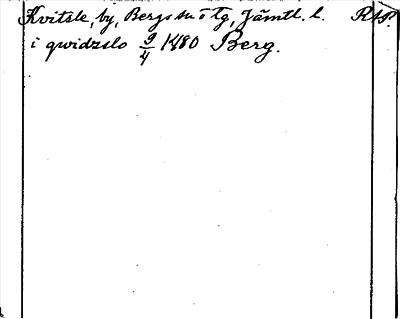 Kvitsle, by, Bergs sn o tg, Jämtl. l. RAP.
i qwidzslo 9/4 1480 Berg.